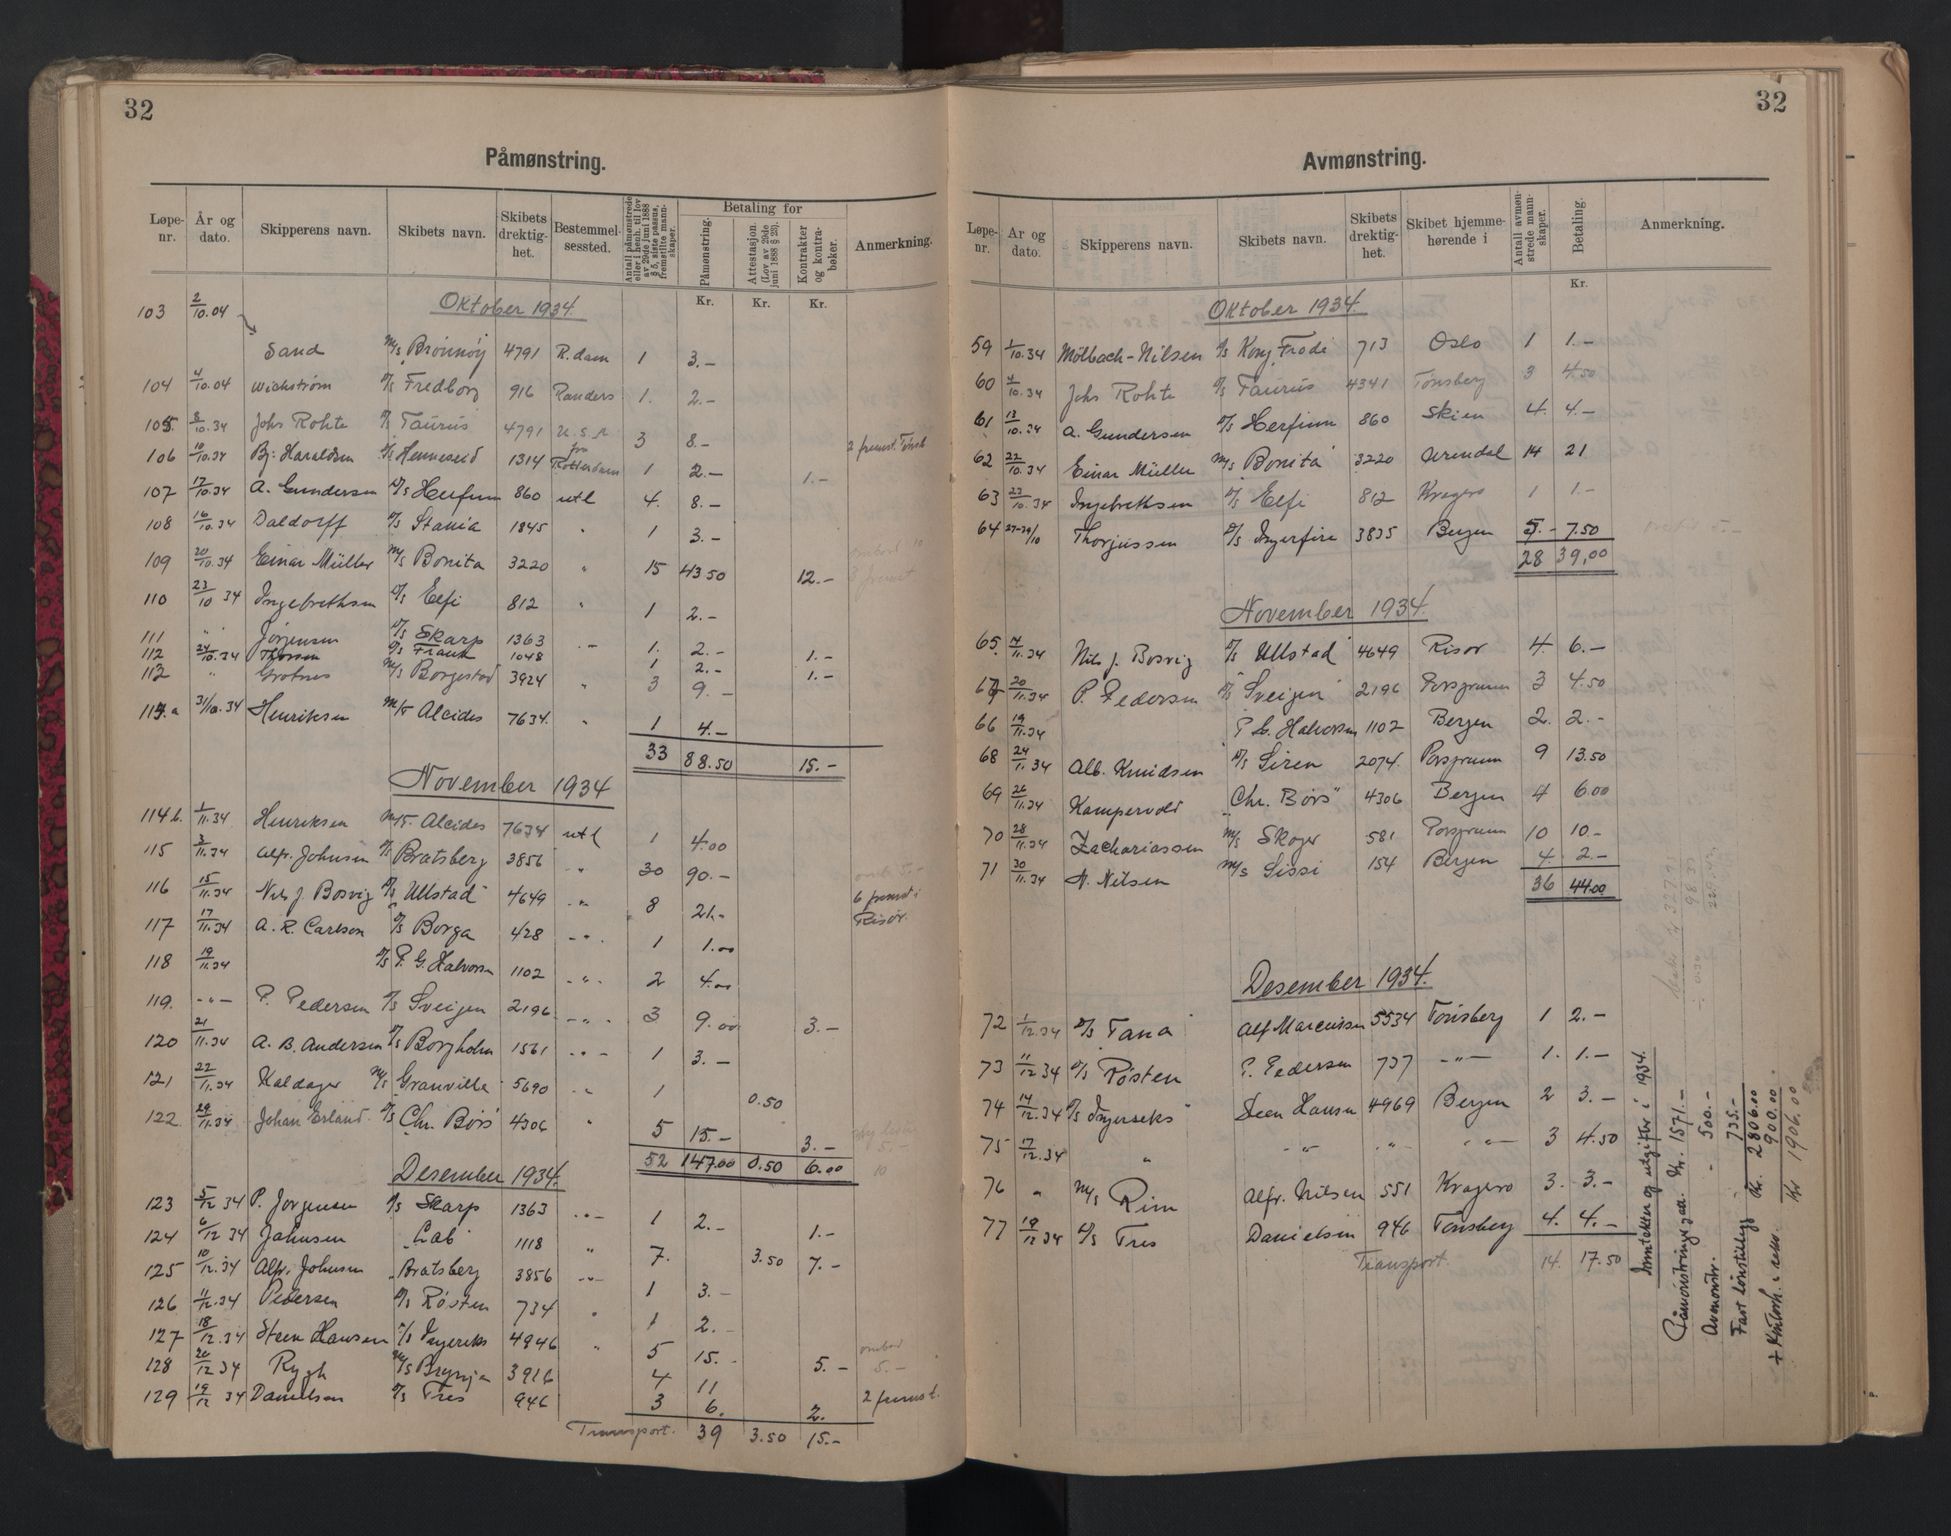 32
Påmønstring.
Løpe-nr. | År og dato. | Skipperens navn. | Skibets navn. | Skibets drektig-het. | Bestemmel-sessted. | Antall påmønstrede eller i henh. til lov av 29de juni 1888 § 5, siste passus, fremstillte mann-skaper. | Betaling for | Påmønstring. | Attestasjon. (Lov av 29de juni 1888 § 23). | Kontrakter og kontra-bøker. | Anmerkning.
Kr. Kr. Kr.
103 2/10.04 Oktober 1934.
Sand M/S Brönnöy 4791 R.dam 1 3.-
104 4/10.04 Wichström D/S Fredborg 916 Randers 1. 2.-
105. 8/10.34 Johs Rohte D/S Taurus 4791 U.S.A 3 8.- 2 fremst. Tönsb
106 10/10.34 Bj. Haraldsen D/S Henneseid 1314 fra Rotterdam 1 2.- 1.-
107 17/10.34 A. Gundersen D/S Herfinn 860 utl 4. 8.-
108 16/10.34 Daldorff D/S Stania 1845 " 1 3.-
109 20/10.34 Einar Müller M/S Bonita 3220 " 15 43.50 12.-
110 23/10 34 Ingebrethsen D/S Elfi 812 " 1 2.-
111 " Jörgensen D/S Skarp 1363 " 1. 2.- 1.-
112 24/10.34 Thorsen D/S Frank 1048 1 2.- 1.-
113 " Grotnes M/S Borgestad 3924 " 3 9.-
114.a 31/10.34 Henriksen M/T Alcides 7634. " 1 4.-
33 88.50 15.-
November 1934
114b. 1/11.34 Henriksen M/T. Alcides 7634 utl 1 4.00
115 3/11.34 Alfr. Johnsen D/S Bratsberg 3856 " 30 90.-
116 15/11.34 Nils J. Bosvig D/S Ullstad 4649 -"- 8 21.- 6 fremst i Risör.
117 17/11.34 A. R. Carlson D/S Borga 428 -"- 1 1.00
118 19/11.34 D/S P. G. Halvorsen 1102 -"- 2 4.00
119. -"- P. Pedersen D/S Sveigen 2196 -"- 3 9.00 3.-
120 21/11.34 A. B. Andersen D/S Borgholm 1561 -"- 1 3.-
121 22/11.34 Kaldager M/S Granville 5690 " 1 0.50
122 29/11.34 Johan Erland D/S Chr. Börs 4306 " 5 15.- 3.-
52 147.00 0.50 6.00
Desember 1934.
123 5/12 34 P. Jorgensen D/S Skarp 1363 -"- 1 2.- 1.-
124 6/12 34 Johnsen "Lab" 1118 " 7. 3.50 7.-
125 10/12.34 Alfr. Johnsen "Bratsberg 3856 -"- 1 3.-
126 11/12.34 Pedersen D/S Rösten 734 " 1 2.-
127 18/12.34 Steen Hansen D/S Ingerseks 4946 " 5 15.- 5.- ombord 5.-
128 20/12 34 Rygh M/S Brynje 3916 4 11
129 19/12 34 Danielsen D/S Tres 946 3 6. 2. 2 fremst.
Transport. 39 3.50 15.-
32
Avmønstring.
Løpe-nr. | År og dato. | Skipperens navn. | Skibets navn. | Skibets drektig-het. | Skibet hjemme-hørende i | Antall avmøn-strede mann-skaper. | Betaling. | Anmerkning.
Kr.
Oktober 1934.
59 1/10.34 Mölbach-Nilsen D/S Kong Frode 713 Oslo 1 1.-
60 4/10.34 Johs Rohte D/S Taurus 4341 Tönsberg 3 4.50
61 13/10.34 A. Gundersen D/S Herfinn 860 Skien 4. 4.-
62 22/10.34 Einar Müller M/S Bonita 3220 Arendal 14 21
63 23/10.34 Ingebrethsen D/S Elfi 812 Kragerø 1 1.-
64 27-29/10 Thorjussen D/S Ingerfire 3835 Bergen 5 7.50
28 39,00
November 1934.
65. 14/11.34 Nils J. Bosvig D/S Ullstad 4649 Risor 4. 6.-
67 20/11.34 P. Pedersen D/S Sveigen 2196 Porsgrunn 3 4.50
66 19/11.34 P. G. Halvorsen 1102 Bergen 2. 2.-
68 24/11.34 Alb. Knudsen D/S Siren 2074. Porsgrunn 9 13.50
69 26/11.34 Kampevold "Chr. Börs" 4306 Bergen 4 6.00
70 28/11.34 Zachariassen M/S Skoger 581 Porsgrunn 10 10.-
71 30/11.34 N. Nilsen M/S Sissi 154 Bergen 4. 2.-
36 44.00
Desember 1934.
72 1/12.34 D/S Tana Alf Marcussen 5534 Tönsberg 1 2.-
73 11/12 34 D/S Rösten P. Pedersen 737 -"- 1. 1.-
74 14/12.34 D/S Ingerseks Steen Hansen 4969 Bergen 2 3.-
75 17/12.34 " -"- " -"- 3 4.50
76 " M/S Rim Alfr. Nilsen 551 Kragerø 3. 3.-
77 19/12 34 D/S Tres Danielsen 946 Tönsberg 4. 4.-
Transport. 14. 17.50
Inntekter og utgifter i 1934.
Påmönstring att. Kr. 1571.-
Avmönstr. - 500.-
Fast lönstillegg - 735.-
Kr. 2806.00
+ Kontorh. 900.00
Kr 1906.00